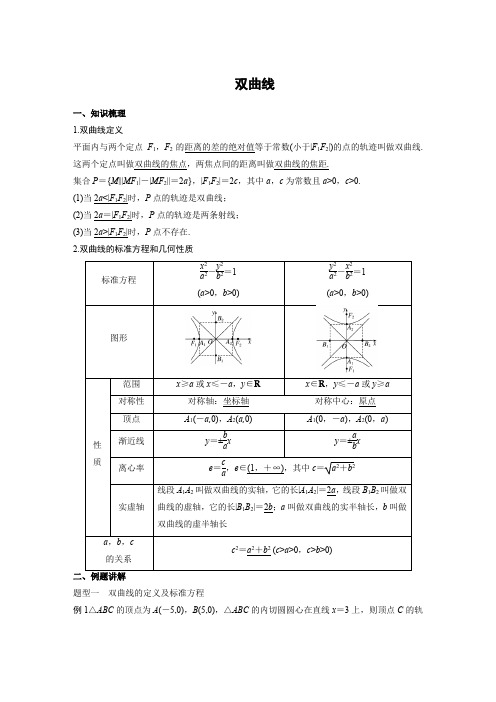 双曲线
一、知识梳理
1.双曲线定义
平面内与两个定点 F₁，F₂ 的距离的差的绝对值等于常数(小于|F₁F₂|)的点的轨迹叫做双曲线.
这两个定点叫做双曲线的焦点，两焦点间的距离叫做双曲线的焦距.
集合 P＝{M|||MF₁|－|MF₂||＝2a}，|F₁F₂|＝2c，其中 a，c 为常数且 a>0，c>0.
(1)当 2a<|F₁F₂|时，P 点的轨迹是双曲线；
(2)当 2a＝|F₁F₂|时，P 点的轨迹是两条射线；
(3)当 2a>|F₁F₂|时，P 点不存在.
2.双曲线的标准方程和几何性质
标准方程 x²/a²－y²/b²＝1 (a>0，b>0) y²/a²－x²/b²＝1 (a>0，b>0)
图形 y B₂ F₁ A₁ O A₂ F₂ x B₁ y F₂ A₂ B₁ O B₂ x A₁ F₁
性质
范围 x≥a 或 x≤－a，y∈R x∈R，y≤－a 或 y≥a
对称性 对称轴：坐标轴 对称中心：原点
顶点 A₁(－a,0)，A₂(a,0) A₁(0，－a)，A₂(0，a)
渐近线 y＝±b/a x y＝±a/b x
离心率 e＝c/a，e∈(1，＋∞)，其中 c＝√(a²＋b²)
实虚轴 线段 A₁A₂ 叫做双曲线的实轴，它的长|A₁A₂|＝2a，线段 B₁B₂ 叫做双
曲线的虚轴，它的长|B₁B₂|＝2b；a 叫做双曲线的实半轴长，b 叫做
双曲线的虚半轴长
a，b，c
的关系 c²＝a²＋b² (c>a>0，c>b>0)
二、例题讲解
题型一 双曲线的定义及标准方程
例 1△ABC 的顶点为 A(－5,0)，B(5,0)，△ABC 的内切圆圆心在直线 x＝3 上，则顶点 C 的轨